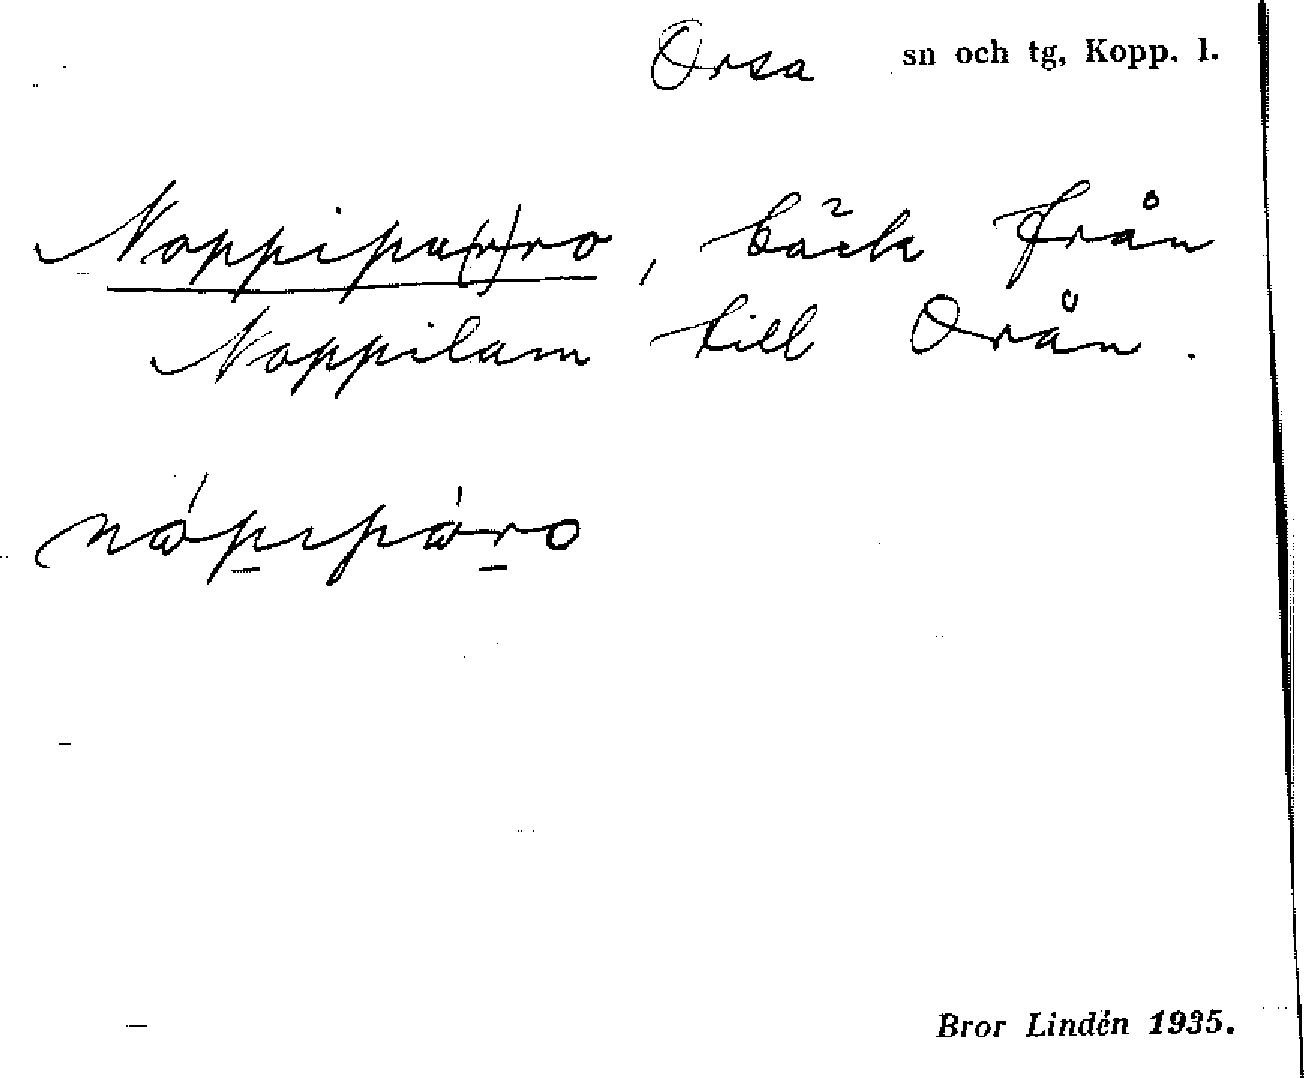 Orsa sn och tg, Kopp. l.
Noppipu(r)ro, bäck från
Noppilam till Orån.
Bror Lindén 1935.